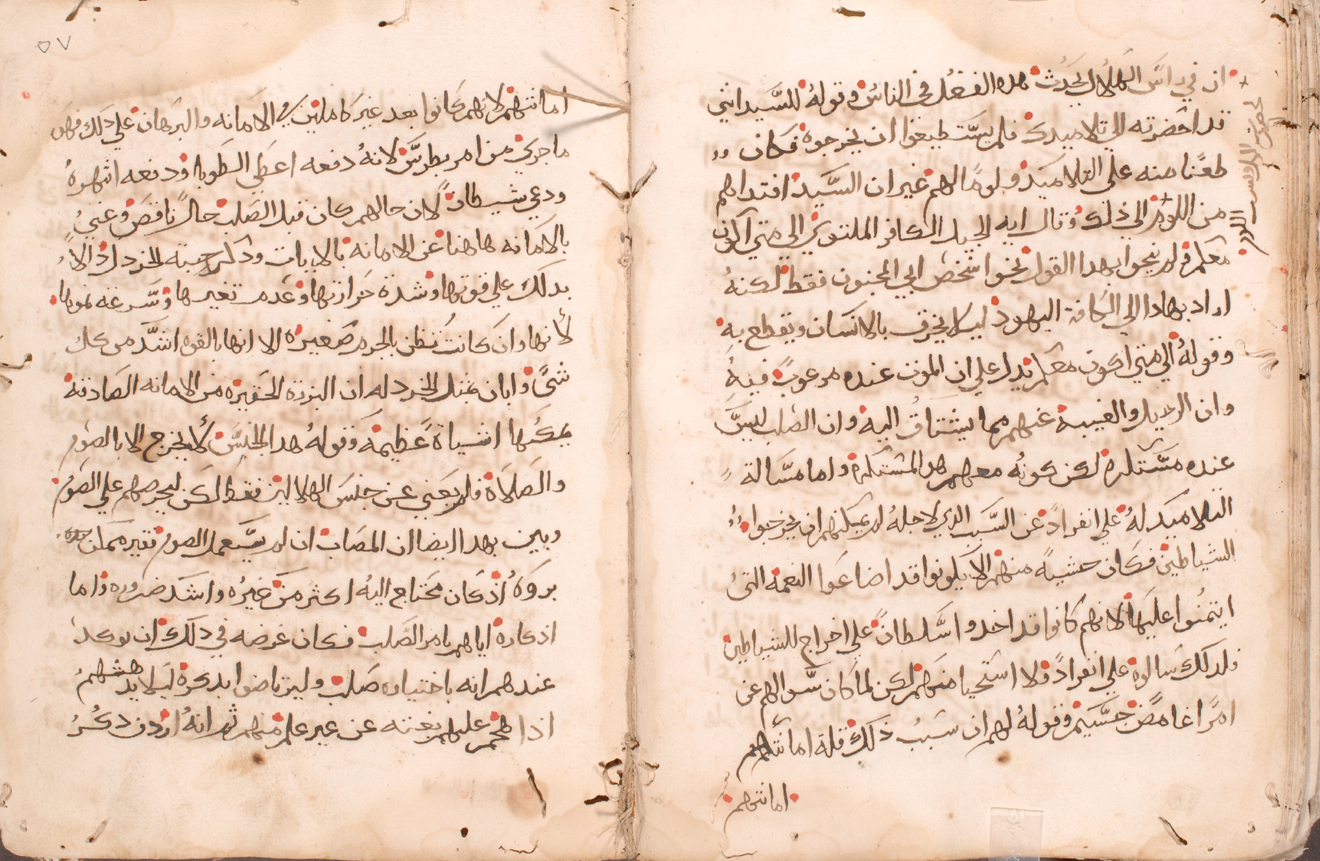 ان في راس الهلال يحدث هده الفعل في الناس وقوله للسيد انني
قد احضرته الي تلاميدك فلم يستطيعوا ان يخرجوه فكان
طعنا منه علي التلاميد ولوما لهم غير ان السيد افتداهم
من اللوم الي ذلك وقال ايه الجيل الكافر الملتوي الي متي اكون
معكم ولم ينحوا بهدا القول نحوا شخص ابي المجنون فقط لكنه
اراد بهادا الي الكافة اليهود ليلا يخرق بالانسان ويقطع به
وقوله الي متي اكون معكم تدل علي ان الموت عنده مرغوب فيه
وان الرحيل والغيبة عنهم مما يشتاق اليه وان الصلب ليس
عنده مستكره لكن كونه معهم هو المستكره واما مسالة
التلاميد له علي انفراد عن السبب الدي لاجله لم يمكنهم ان يخرجوا
الشياطين فكان خشية منهم الا يكونوا قد اضاعوا النعمة التي
ايتمنوا عليها لانهم كانوا قد اخدوا سلطان علي اخراج الشياطين
فلدلك سالوه علي انفراد ولا استحيا منهم لكن لما كان سوالهم عن
امرا غامض جسيم وقوله لهم ان سبب ذلك قلة امانتهم
امانتهم
امانتهم لانهم كانوا بعد غير كاملين في الامانه والبرهان علي دلك فهو
ما جري من امر بطرس لانه دفعه اعطي الطوبا ودفعه انتهره
ودعي شيطان لان حالهم كان قبل الصلب حالا ناقص وعني
بالامانه هاهنا عن الامانه بالايات وذكر حبة الخردل
بدلك علي قوتها وشدة حرارتها وعدم تغيرها وسرعه نموها
لانها وان كانت تظن بالجرم صغيره الا انها بالقوه اشد من كل
شي وابان عند الخردله ان النزرة الحقيره من الامانه الصادقة
يمكنها اشياة عظيمة وقوله هدا الجنس لا يخرج الا بالصوم
والصلاة فلم يعني عن جنس الهلاليز فقط لكن ليحرصهم علي الصوم
وبين بهدا ايضا ان المصاب ان لم يستعمل الصوم فغير ممكن
بروه اذ كان محتاج اليه اكثر من غيره واشد ضروره واما
اذكاره اياهم بامر الصلب فكان غرضه في دلك ان يوكد
عندهم انه باختياره صلب وليرتاضوا بدكره ليلا يدهشهم
اذا هجم عليهم بغته عن غير علم منهم ثم انه اردف دكر